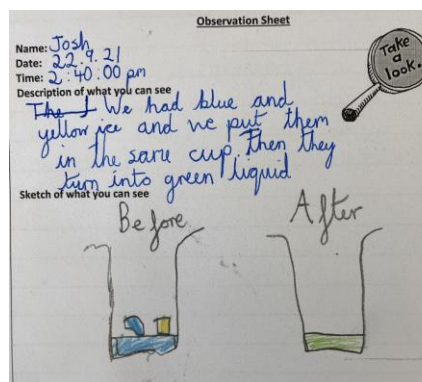 Observation Sheet
Name: Josh
Date: 22.9.21
Time: 2:40:00 pm
Take
a
look.
Description of what you can see
We had blue and
yellow ice and we put them
in the same cup. Then they
turn into green liquid
Sketch of what you can see
Before
After